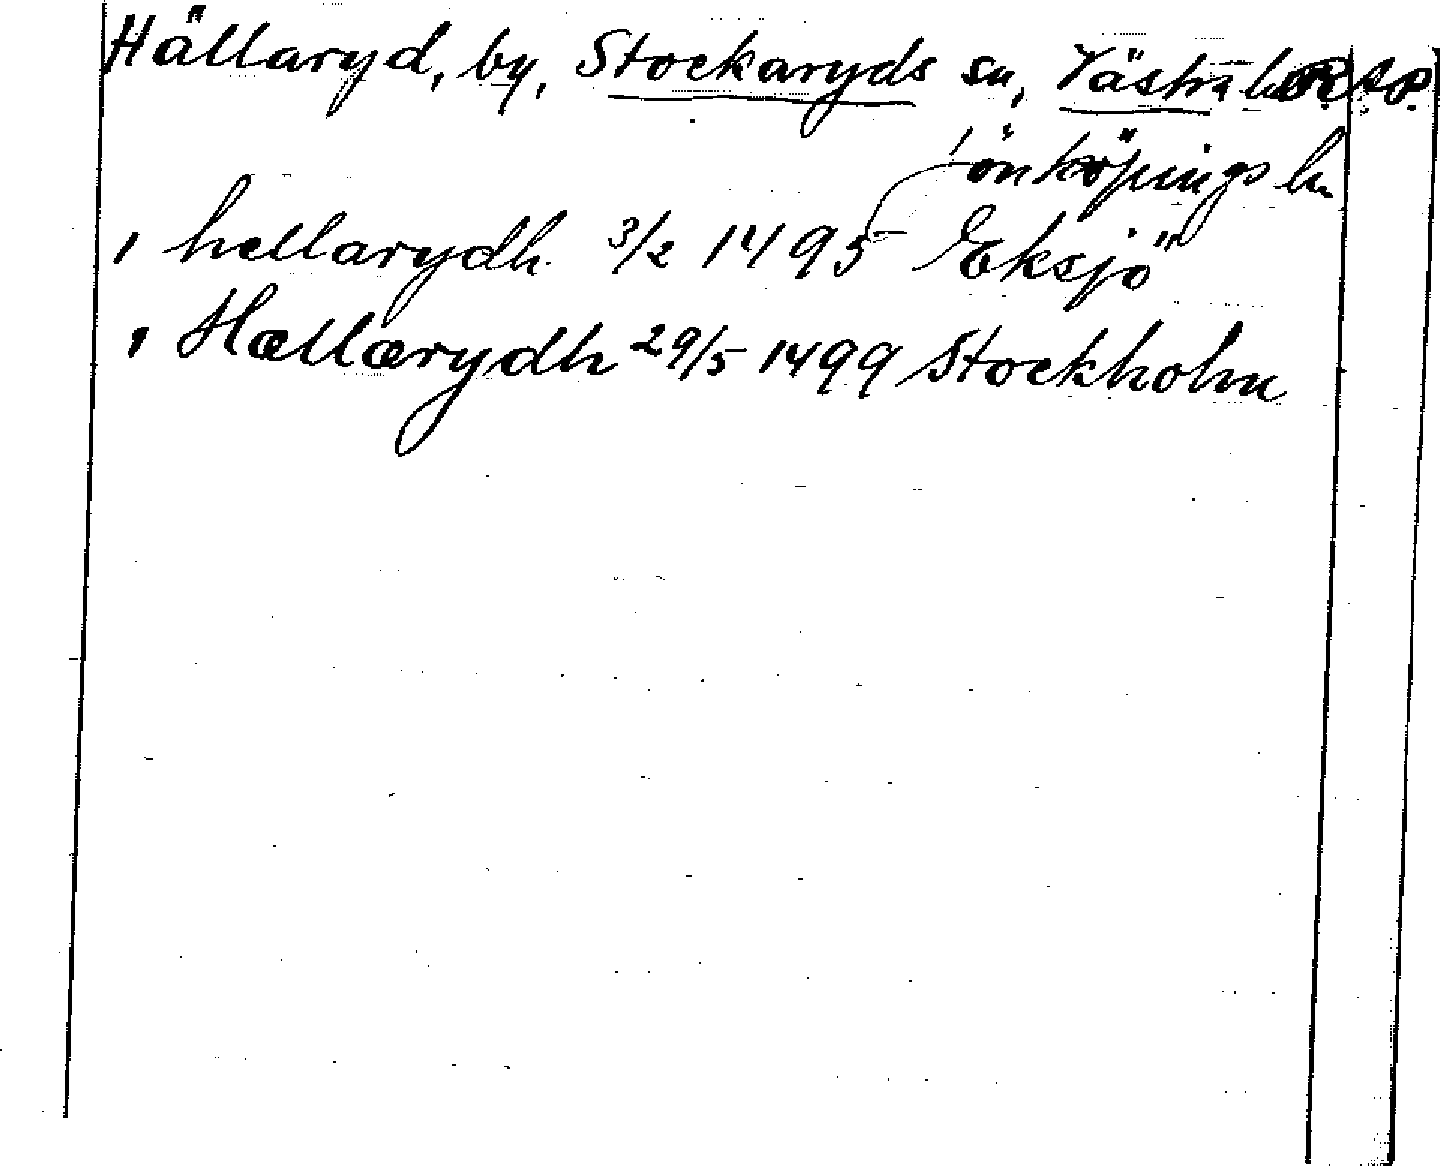 Hällaryd, by, Stockaryds sn, Västra hd RAp.
Jönköpings ln
, hellarydh 3/2 1495 Eksjö
, Hællærydh 29/5 1499 Stockholm